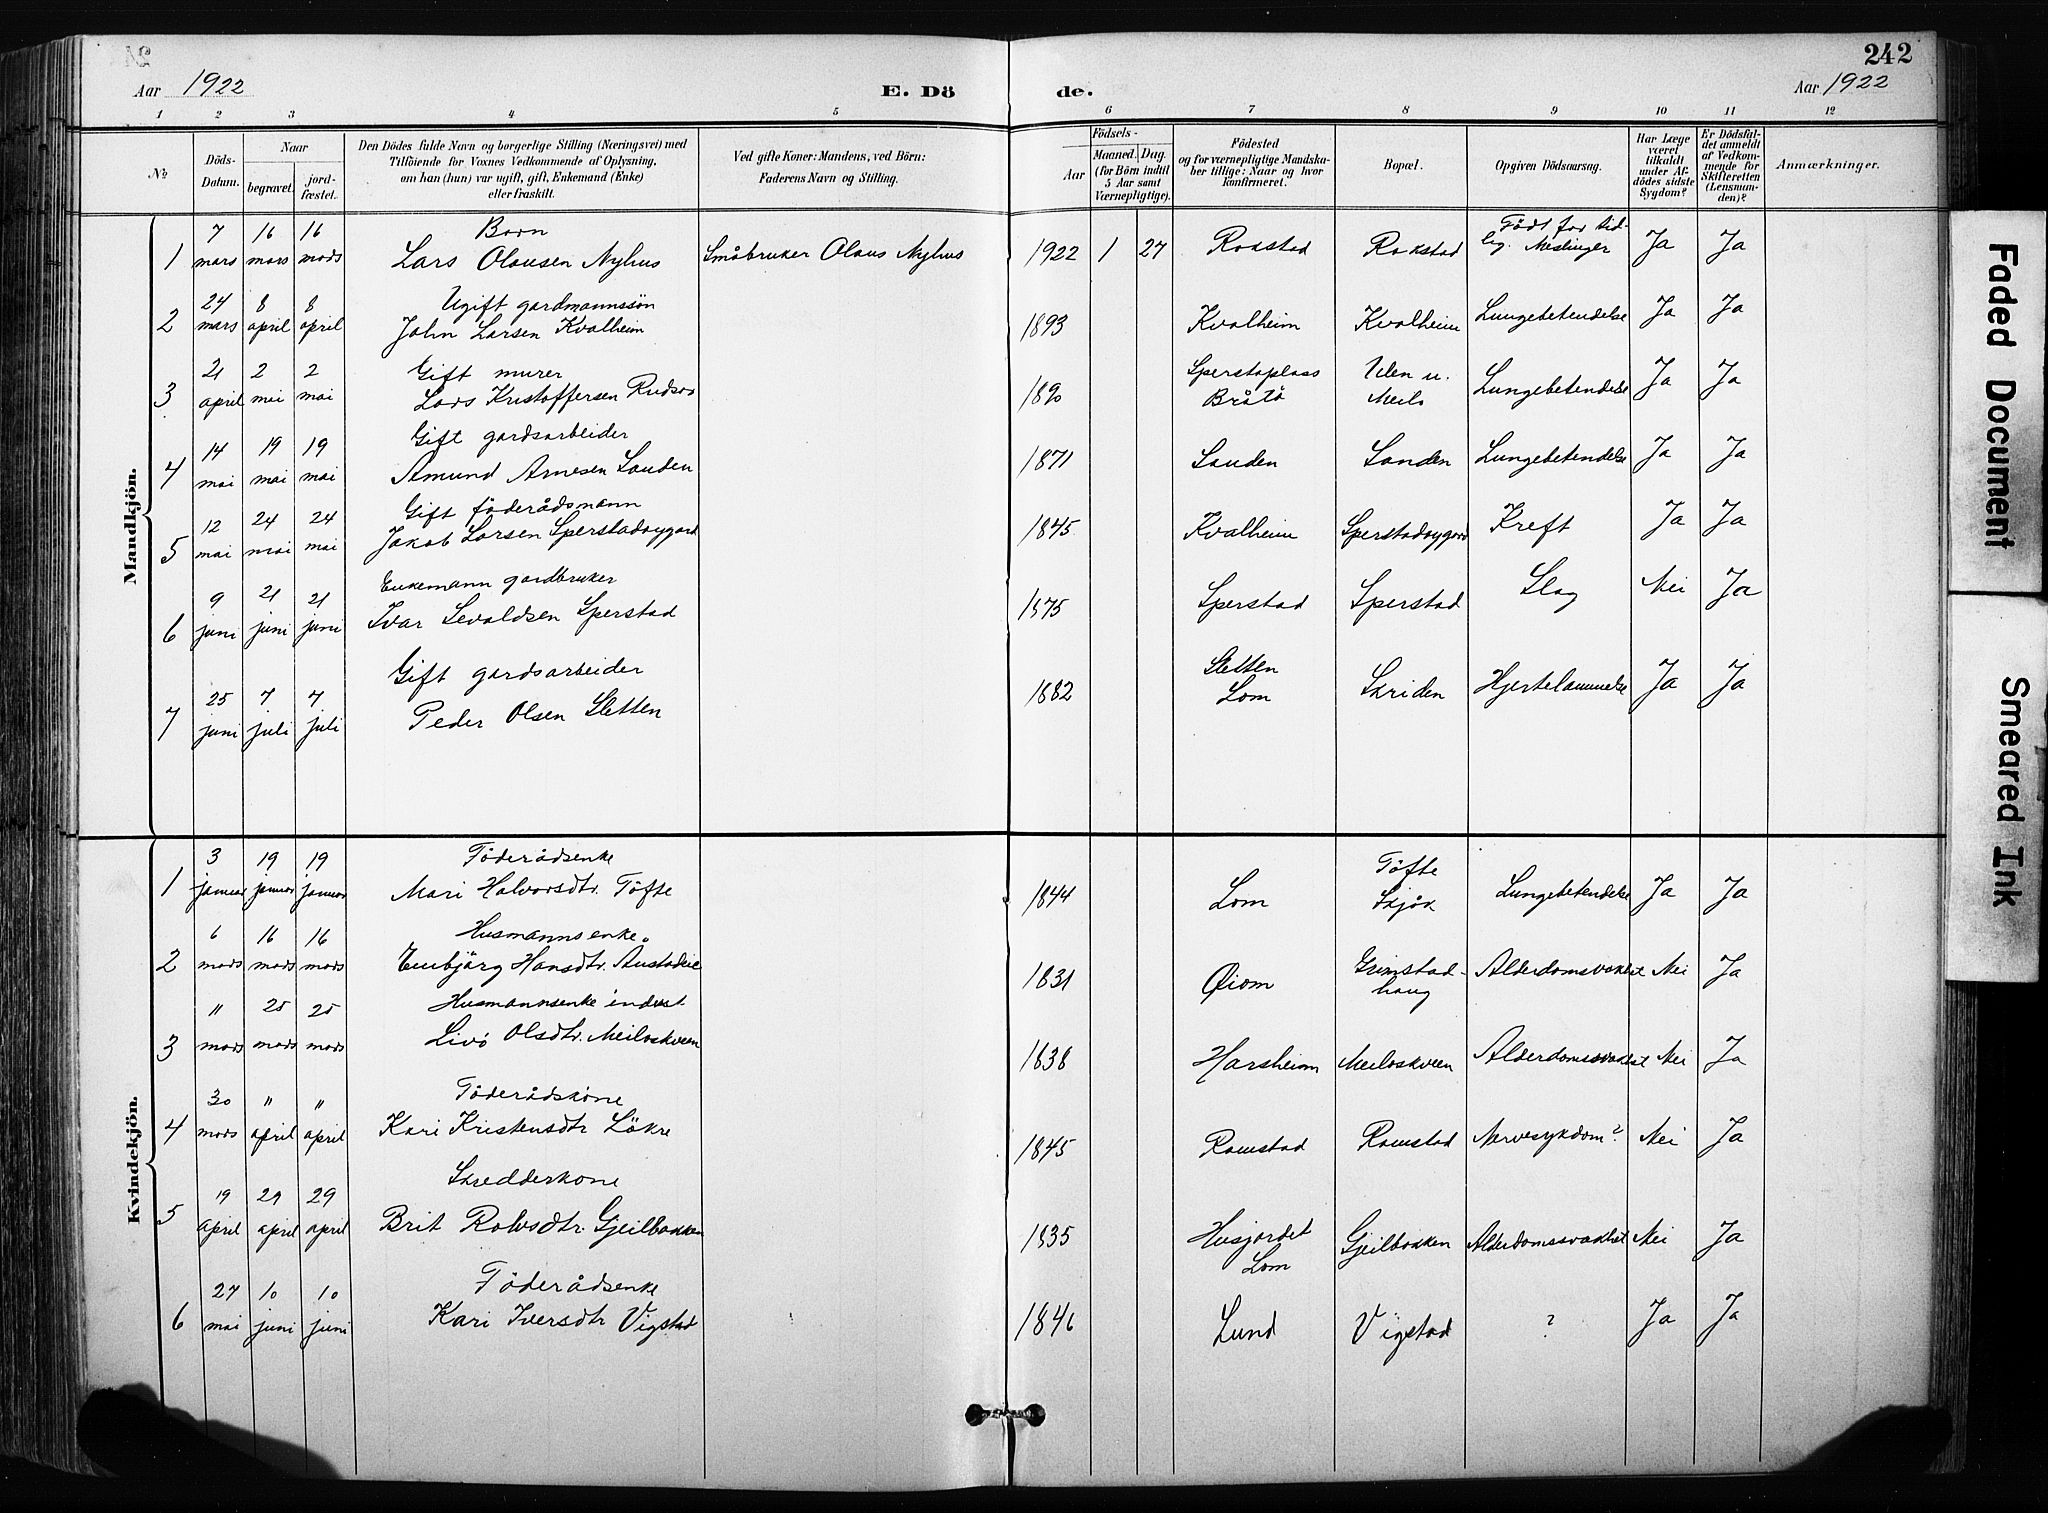 242
Aar 1922
E. Dö
de.
Aar 1922
1 2 3 4 5 6 7 8 9 10 11 12
№
Döds-Datum.
Naar
begravet.
jordfæstet.
Den Dödes fulde Navn og borgerlige Stilling (Næringsvei) med
Tilföiende for Voxnes Vedkommende af Oplysning,
om han (hun) var ugift, gift, Enkemand (Enke)
eller fraskilt.
Ved gifte Koner: Mandens, ved Börn:
Faderens Navn og Stilling.
Födsels-
Aar
Maaned. Dag.
(for Börn indtil
5 Aar samt
Værnepligtige).
Födested
og for værnepligtige Mandska-
ber tillige: Naar og hvor
konfirmeret.
Bopæl.
Opgiven Dödsaarsag.
Har Læge
været
tilkaldt
under Af-
dödes sidste
Sygdom?
Er Dödsfal-
det anmeldt
af Vedkom-
mende for
Skifteretten
(Lensman-
den)?
Anmærkninger.
Mandkjön.
7 16 16 Barn Født for tid-
1 mars mars mars Lars Olausen Nyhus Småbruker Olaus Nyhus 1922 1 27 Rakstad Rakstad lig. Meslinger Ja Ja
24 8 8 Ugift gardmannssön
2 mars april april John Larsen Kvalheim 1893 Kvalheim Kvalheim Lungebetendelse Ja Ja
21 2 2 Gift murer Sperstaplass
3 april mai mai Lars Kristoffersen 1890 Bråtå Lungebetendelse Ja Ja
14 19 19 Gift gardsarbeider
4 mai mai mai Amund Arnesen Sanden 1871 Sanden Sanden Lungebetendelse Ja Ja
12 24 24 Gift föderådsmann
5 mai mai mai Jakob Larsen Sperstadnygard 1845 Kvalheim Sperstadnygard Kreft Ja Ja
9 21 21 Enkemann gardbruker
6 juni juni juni Ivar Sevaldsen Sperstad 1875 Sperstad Sperstad Slag Nei Ja
25 7 7 Gift gardsarbeider Sletten
7 juni juli juli Peder Olsen Sletten 1882 Lom Skriden Hjertelammelse Ja Ja
Kvindekjön.
3 19 19 Föderådsenke Töfte
1 januar januar januar Mari Halvorsdtr. Töfte 1844 Lom Skjåk Lungebetendelse Ja Ja
6 16 16 Husmannsenke. Grimstad-
2 mars mars mars Embjörg Hansdtr. 1831 Øiom haug Alderdomssvakhet Nei Ja
" 25 25 Husmannsenke inderst
3 mars mars mars Livö Olsdtr. Meiloskveen 1838 Harsheim Meiloskveen Alderdomssvakhet Nei Ja
30 " " Föderådskone
4 mars april april Kari Kristensdtr Lökre 1845 Ramstad Ramstad Nervesykdom? Nei Ja
19 29 29 Skredderkone
5 april april april Brit Rolvsdtr. Gjeilbakken 1835 Husjordet Gjeilbakken Alderdomssvakhet Nei Ja
Lom
27 10 10 Föderådsenke
6 mai juni juni Kari Iversdtr Vigstad 1846 Lund Vigstad ? Ja Ja
Faded Document
Smeared Ink